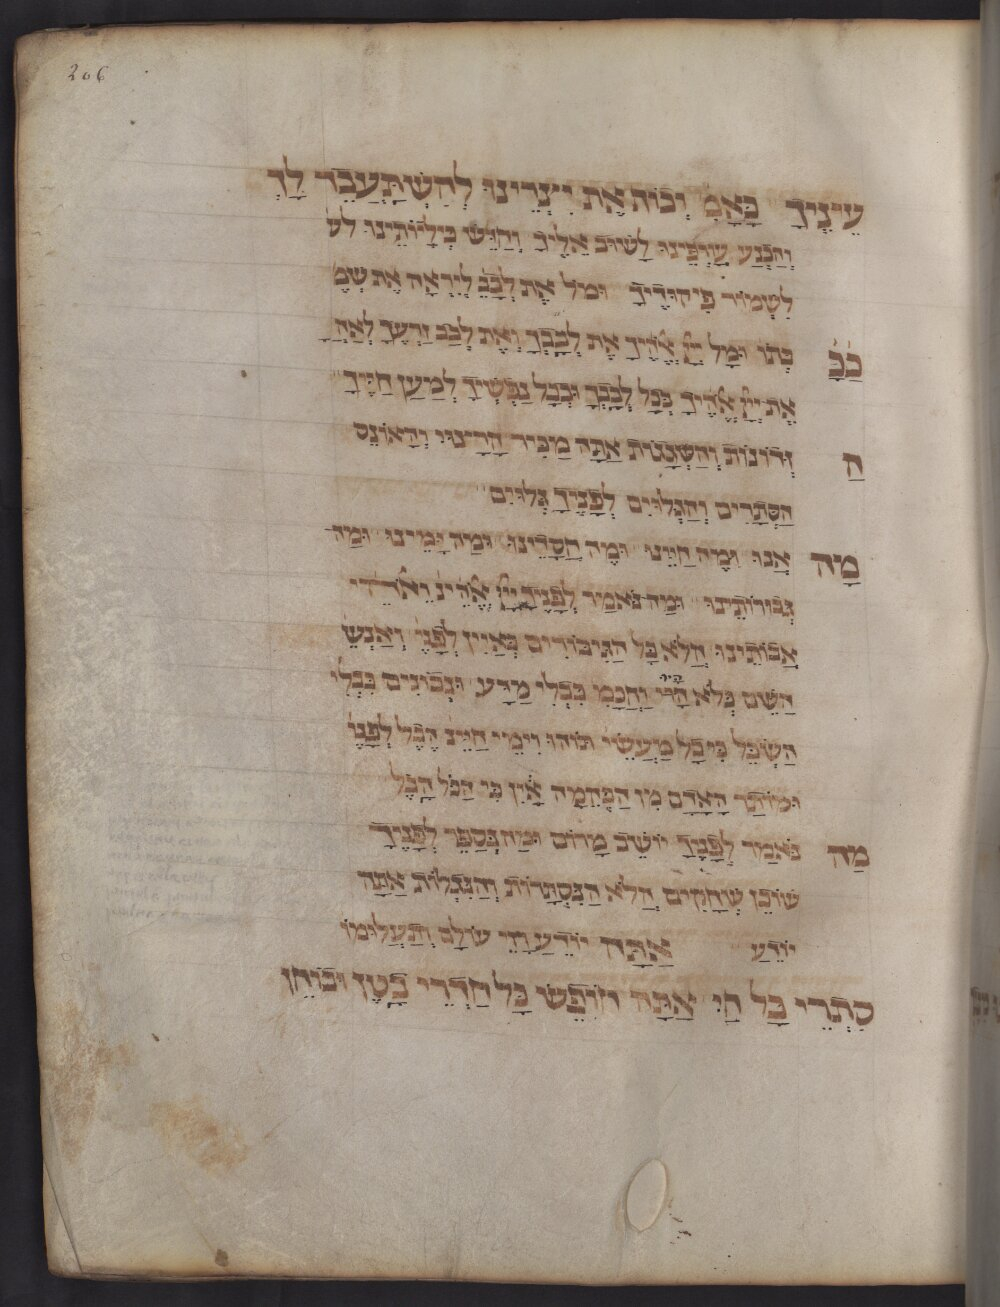 206
עֵינֶיךָ כָּאָמ׳ וְכוֹת אֶת יִצְרֵינוּ לְהִשְׁתַּעְבֵּד לָךְ
וְהַכְנַע עָרְפֵּינוּ לָשׁוּב אֵלֶיךָ וְחַדֵּשׁ כִּילְיוֹתֵינוּ לש
לִשְׁמוֹר פִּיקוּדֶיךָ וּמֹל אֶת לְבָבֵ לְיִרְאָה אֶת שְׁמֶ
כַּכָּ כְּתוּ וּמָל יְיָ אֱלֹהֶיךָ אֶת לְבָבְךָ וְאֶת לְבַב זַרְעֶךָ לְאַהֲ
אֶת יְיָ אֱלֹהֶיךָ בְּכָל לְבָבְךָ וּבְכָל נַפְשְׁךָ לְמַעַן חַיֶּיךָ
הַ זְּדוֹנוֹת וְהַשְּׁגָגוֹת אַתָּה מַכִּיר הָרָצוּי וְהָאוֹנֶס
הַסְּתָרִים וְהַגְּלוּיִם לְפָנֶיךָ גְּלוּיִם
מָה אָנוּ וּמָה חַיֵּינוּ וּמָה חֲסָדֵינוּ וּמַה וּמַה
גְּבוּרוֹתֵינוּ וּמַה נֹּאמַר לְפָנֶיךָ יְיָ אֱלֹהֵינוּ וֵאלֹהֵי
אֲבוֹתֵינוּ הֲלֹא כָּל הַגִּיבּוֹרִים כְּאַיִן לְפָנֶי וְאַנְשֵׁ
הַשֵּׁם כְּלֹא הָיוּ וַחֲכָמִ׳ כִּבְלִי מַדָּע וּנְבוֹנִים כִּבְלִי
הַשְׂכֵּל כִּי כָל מַעֲשֵׂי תּוֹהוּ וִימֵי חַיֵּינ הֶבֶל לְפָנֶי
וּמוֹתַר הָאָדָם מִן הַבְּהֵמָה אָיִן כִּי הַכֹּל הָבֶל
מַה נֹּאמַר לְפָנֶיךָ יוֹשֵׁב מָרוֹם וּמַה נְּסַפֵּר לְפָנֶיךָ
שׁוֹכֵן שְׁחָקִים הֲלֹא הַנִּסְתָּרוֹת וְהַנִּגְלוֹת אַתָּה
יוֹדֵעַ אַתָּה יוֹדֵעַ רָזֵי עוֹלָם וְתַעֲלוּמוֹ
סִתְרֵי כָּל חַי אַתָּה חוֹפֵשׂ כָּל חַדְרֵי בָטֶן וּבוֹחֵן